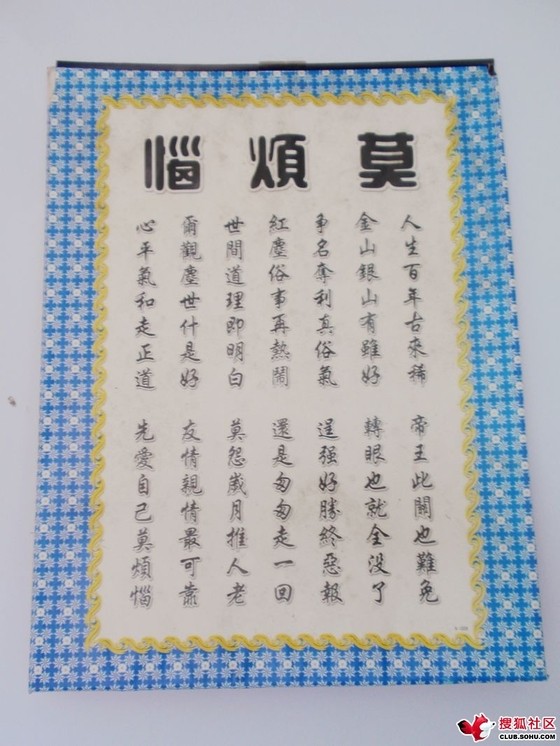 莫煩惱
人生百年古來稀
帝王此關也難免
金山銀山有雖好
轉眼也就全没了
爭名奪利真俗氣
逞强好勝終惡報
紅塵俗事再熱鬧
還是匆匆走一回
世間道理即明白
莫怨歲月推人老
爾觀塵世什是好
友情親情最可靠
心平氣和走正道
先愛自己莫煩惱
搜狐社区
CLUB.SOHU.COM